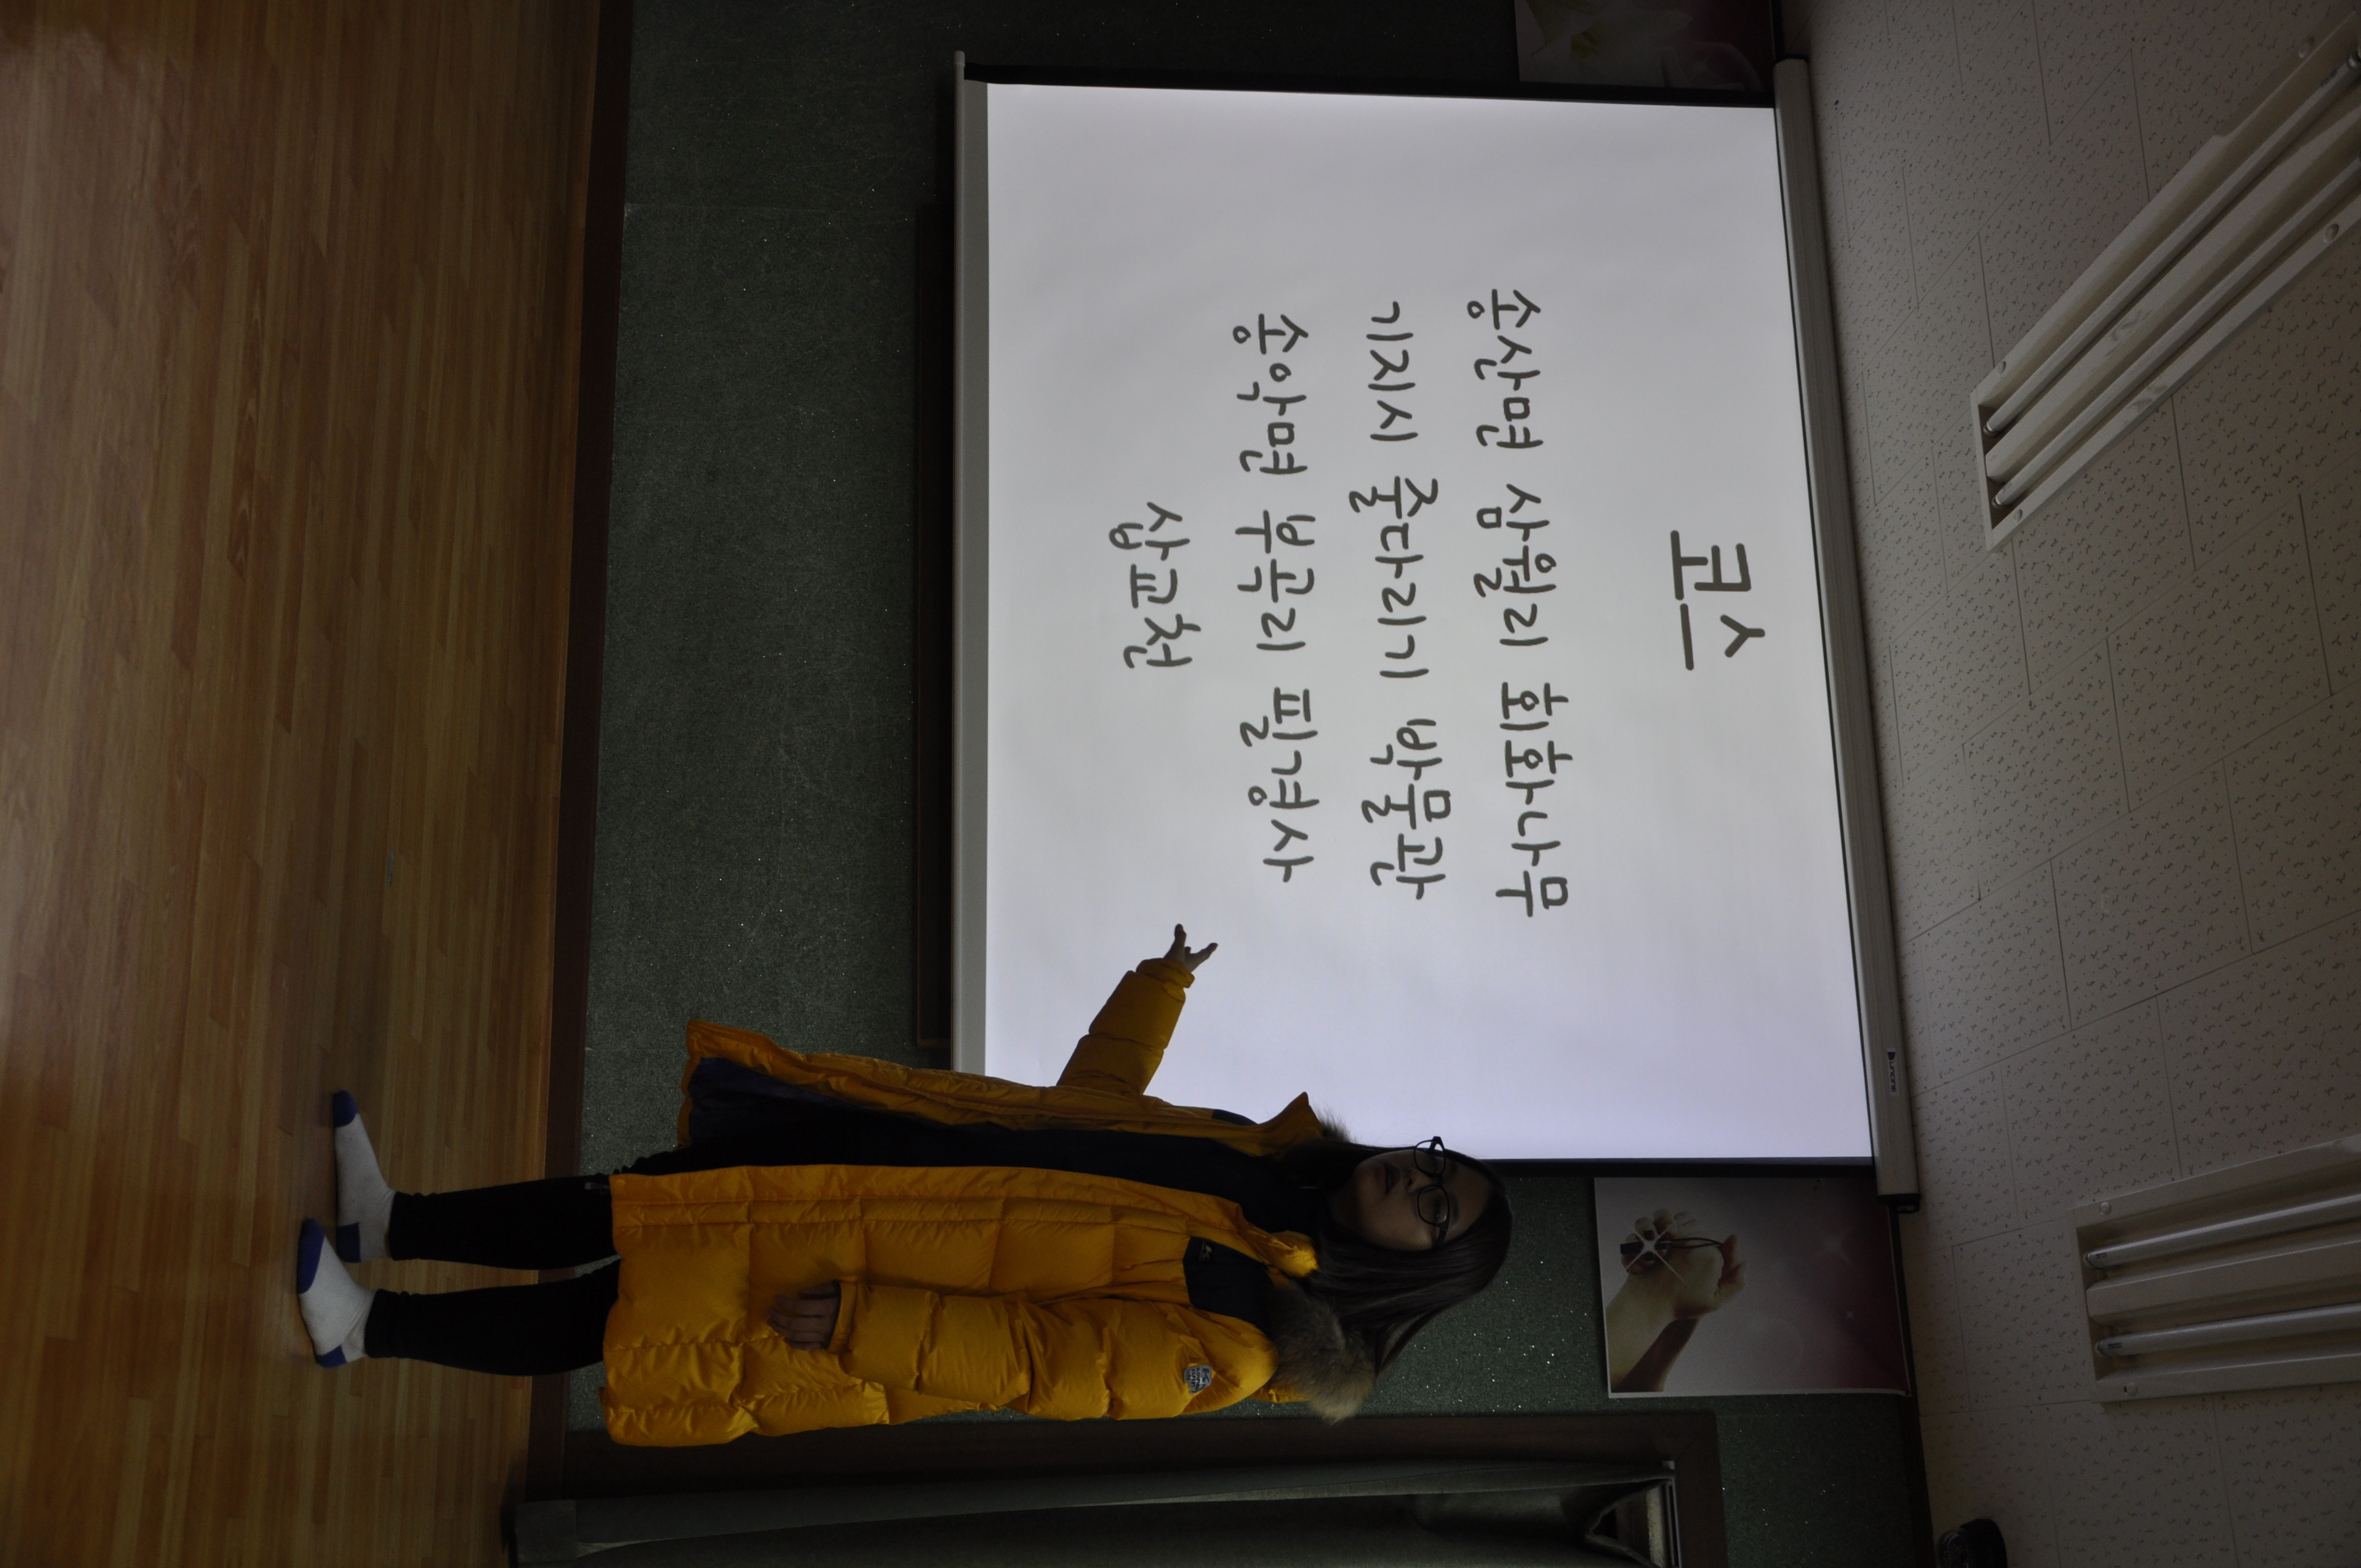 코스
송산면 삼월리 회화나무
기지시 줄다리기 박물관
송악면 부곡리 필경사
삽교천